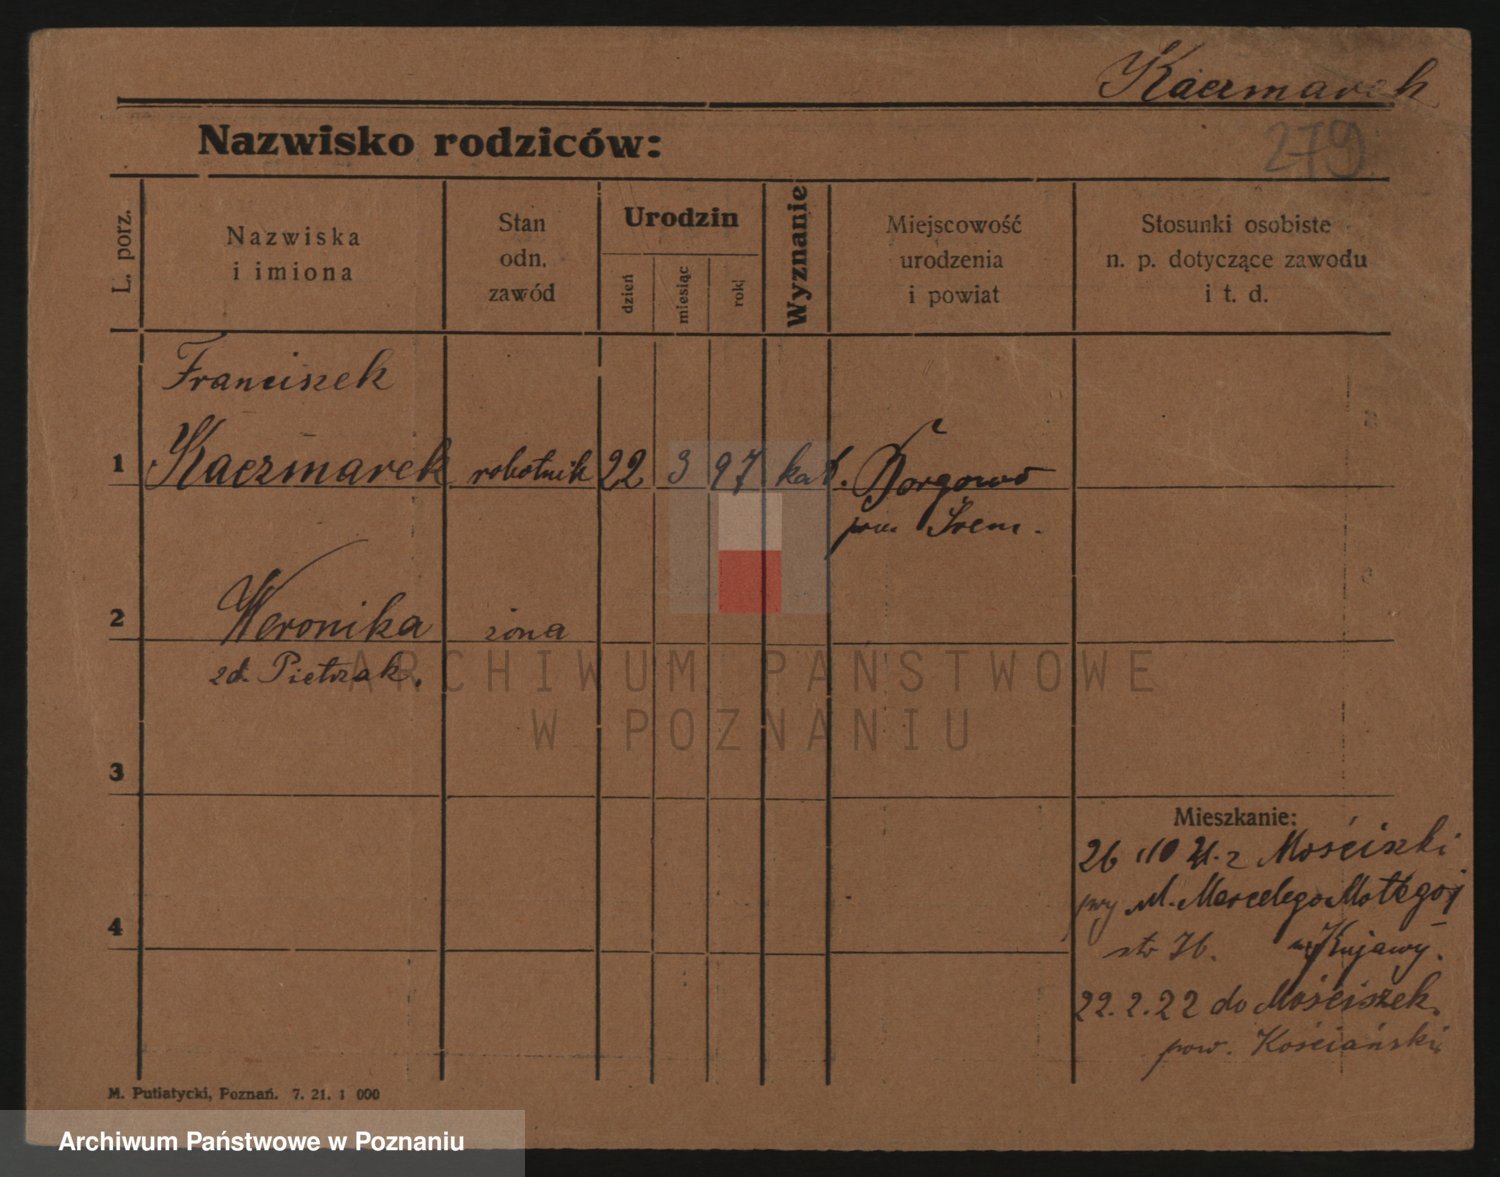 Kaczmarek
279
Nazwisko rodziców:
L. porz.
Nazwiska
i imiona
Stan
odn.
zawód
Urodzin
dzień
miesiąc
rok
Wyznanie
Miejscowość
urodzenia
i powiat
Stosunki osobiste
n. p. dotyczące zawodu
i t. d.
Franciszek
1 Kaczmarek robotnik 22 3 97 kat. Borgowo
pow. Śrem.
2 Weronika żona
zd. Pietrzak.
3
4
Mieszkanie:
26 10 21. z Mościszki
M. Marcelego Mottego
str 76. Kujawy.
22. 2. 22 do Mościszek.
pow. Kościański
M. Putiatycki, Poznań. 7. 21. 1 000
ARCHIWUM PAŃSTWOWE
W POZNANIU
Archiwum Państwowe w Poznaniu